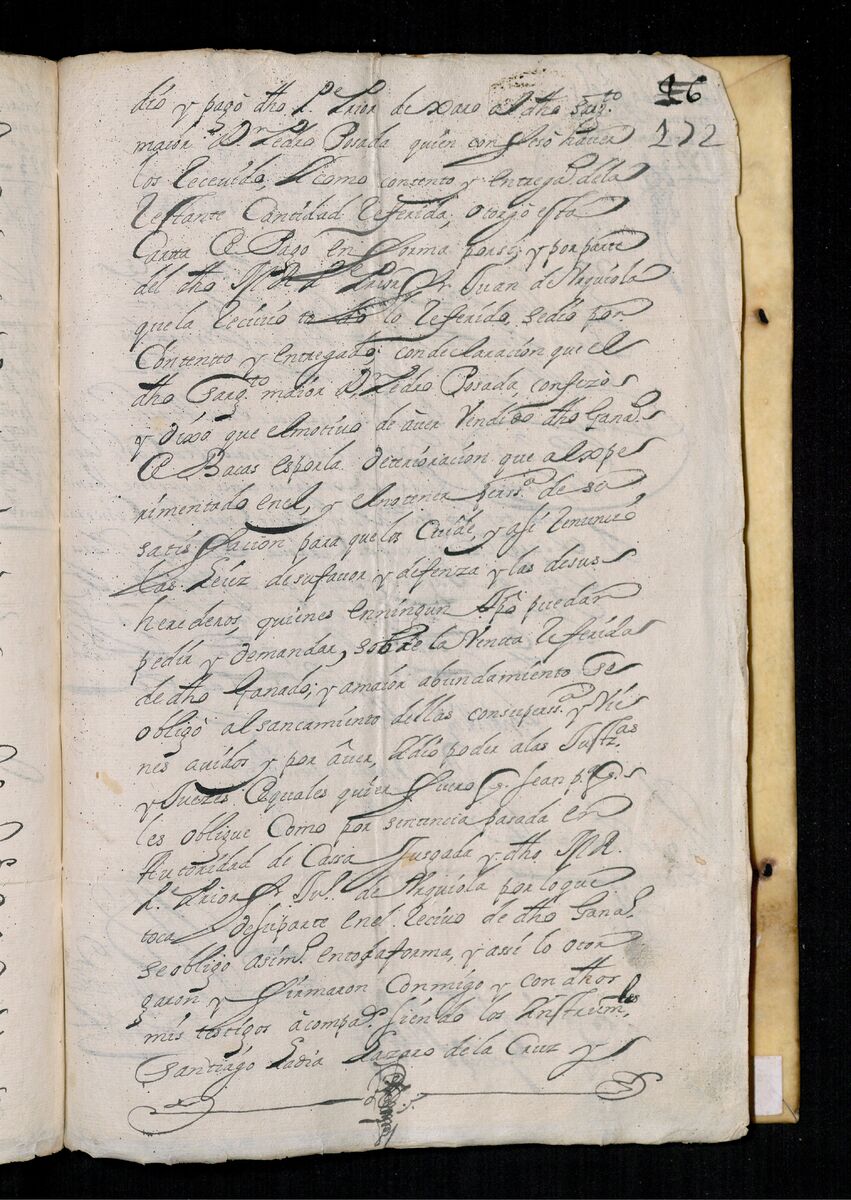 16
172
dio y pagò dho P.e Prior de Xaro al dho Sarg.to
maior D.n Pedro Posada quien confesò haver
los Recevido, y como contento y entregad.o della
Restante Cantidad Referida, otorgò esta
Carta de Pago en forma por si, y por parte
del dho M. R. P.e Prior Fr. Juan de Arguiola
que la Recivio to do lo Referido, sediò por
Contento y entregado, con declaracion que el
dho Sarg.to maior D.n Pedro Posada, confezò
y dixo que el motivo de aver Vendido dho Gana.
de Bacas es por la deterioracion que al xpe
rimentado en el, y el no tener perss.a de su
satisfacion para que los Cuide, y asi Renunciò
las Leiez de su favor y difenza y las de sus
herederos, quienes en ningun tpo puedan
pedir y demandar, sobre la Venta Referida
de dho Ganado; y a maior abundamiento se
obligò al sancamiento dellas con su perss.a y Vie
nes avidos y por âver, diò poder a las Justz.as
y Juezes de quales quier fuero q. sean p.a q.
les oblique Como por sentencia pasada en
Autoridad de Cosa Jusgada y dho M. R.
P. Prior Fr. Ju.o de Arguiola por lo que
toca de su parte en el Recivo de dho Gana.
se obligo asim.o en toda forma, y assi lo otor
garon y firmaron Conmigo y con dhos
mis testigos àcompa.s siendo los Instrum.les
Santiago Ladia Lazaro de la Cruz y